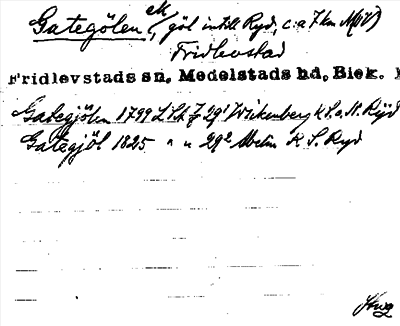 Gategölen ek (, göl intill Ryd, c:a 7 km NV)
Fridlevstad
Fridlevstads sn, Medelstads hd, Blek.
Gategjölen 1799 LSA 29¹ Wickenberg K S. o. N. Ryd
Gategjöl 1825 " " 29² K S. Ryd